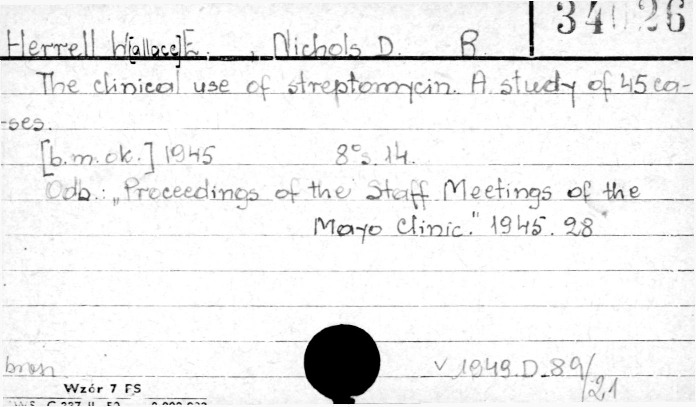 34026
Herrell W[allace] E. , Nichols D. R.
The clinical use of streptomycin. A study of 45 ca-
-ses.
[b.m.ok.] 1945 8° s. 14.
Odb.: „Proceedings of the Staff Meetings of the
Mayo Clinic." 1945. 28
brosz
V 1949.D.89/21
Wzór 7 FS